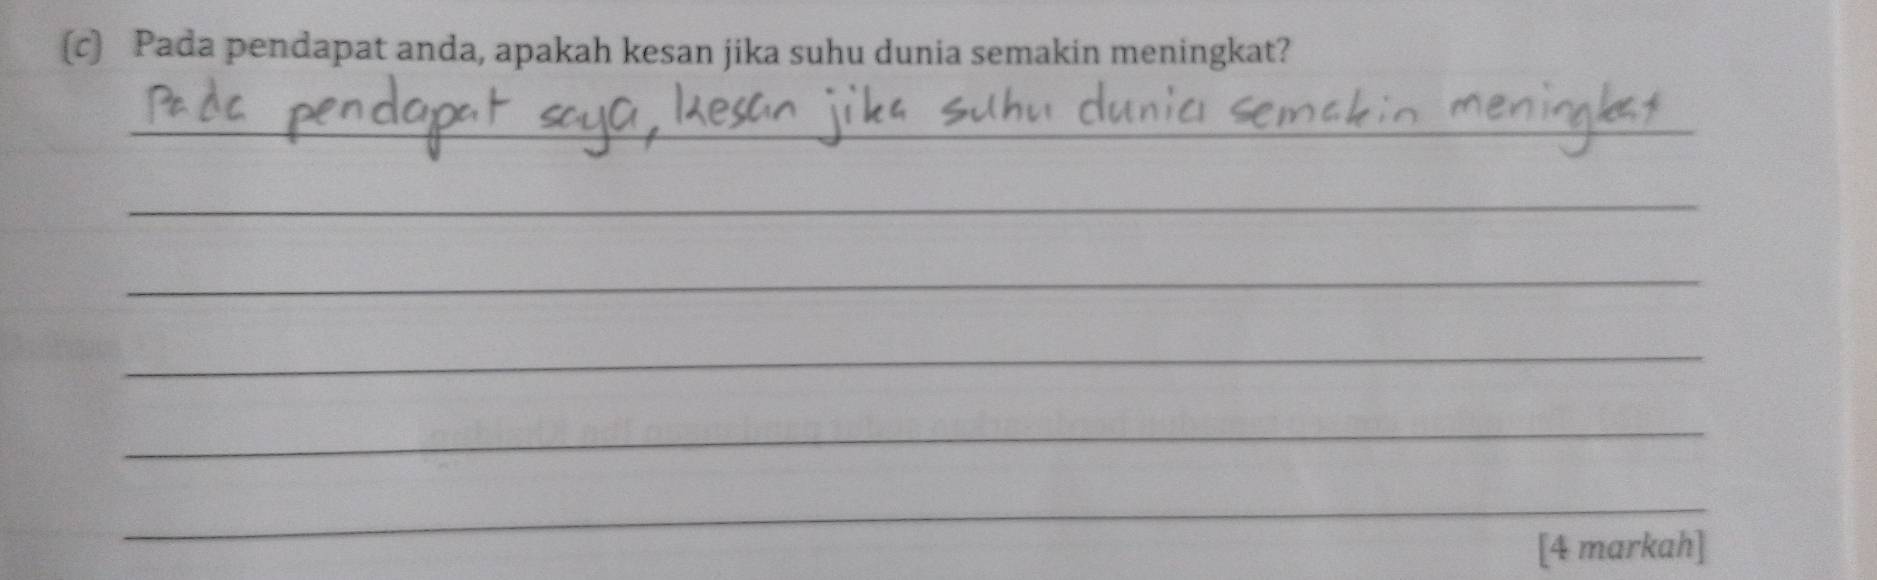 (c) Pada pendapat anda, apakah kesan jika suhu dunia semakin meningkat?
Pada pendapat saya, kesan jika suhu dunia semakin meningkat
[4 markah]